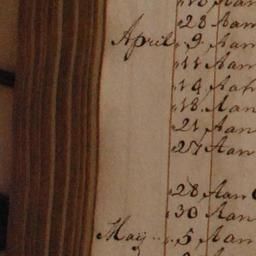 28 Aan
April 9 Aan
11 Aan
14 Aan
18 Aan
21 Aan
27 Aan
28 Aan
30 Aan
May 5 Aan